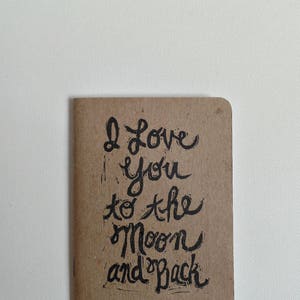 I Love
You
to the
Moon
and Back